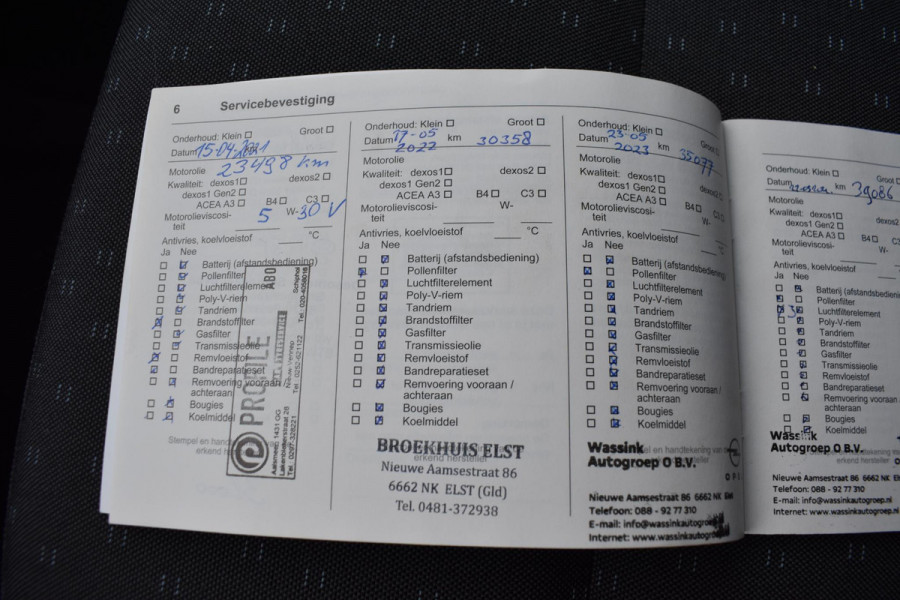 6 Servicebevestiging
Onderhoud: Klein Groot
Datum 15-04-2021
23498 km
Motorolie
Kwaliteit: dexos1 dexos2
dexos1 Gen2
ACEA A3 B4 C3
Motorolieviscosi- 5 W-30 V
teit
Antivries, koelvloeistof °C
Ja Nee
Batterij (afstandsbediening)
Pollenfilter
Luchtfilterelement
Poly-V-riem
Tandriem
Brandstoffilter
Gasfilter
Transmissieolie
Remvloeistof
Bandreparatieset
Remvoering vooraan /
achteraan
Bougies
Koelmiddel
Stempel en
erkend hersteller
PROFILE
ABO
Aalsmeer 1431 GG
Lakenblekerstraat 28
Tel. 0297-328221
Nieuw-Vennep
Tel. 0252-621122
Schiphol
Tel. 020-4059018
Onderhoud: Klein Groot
Datum 17-05 km 30358
2022
Motorolie
Kwaliteit: dexos1 dexos2
dexos1 Gen2
ACEA A3 B4 C3
Motorolieviscosi- W-
teit
Antivries, koelvloeistof °C
Ja Nee
Batterij (afstandsbediening)
Pollenfilter
Luchtfilterelement
Poly-V-riem
Tandriem
Brandstoffilter
Gasfilter
Transmissieolie
Remvloeistof
Bandreparatieset
Remvoering vooraan /
achteraan
Bougies
Koelmiddel
BROEKHUIS ELST
erkend hersteller
Nieuwe Aamsestraat 86
6662 NK ELST (Gld)
Tel. 0481-372938
Onderhoud: Klein Groot
Datum 23-05 km 35077
2023
Motorolie
Kwaliteit: dexos1 dexos2
dexos1 Gen2
ACEA A3 B4 C3
Motorolieviscosi- W-
teit
Antivries, koelvloeistof °C
Ja Nee
Batterij (afstandsbediening)
Pollenfilter
Luchtfilterelement
Poly-V-riem
Tandriem
Brandstoffilter
Gasfilter
Transmissieolie
Remvloeistof
Bandreparatieset
Remvoering vooraan /
achteraan
Bougies
Koelmiddel
Wassink
Autogroep O B.V.
Nieuwe Aamsestraat 86 6662 NK
Telefoon: 088 - 92 77 310
E-mail: info@wassinkautogroep.nl
Internet: www.wassinkautogroep
Onderhoud: Klein
Datum km 39086
Motorolie
Kwaliteit: dexos1 dexos2
dexos1 Gen2
ACEA A3 B4
Motorolieviscosi-
teit
Antivries, koelvloeistof
Ja Nee
Batterij (afstandsbedieni
Pollenfilter
Luchtfilterelement
Poly-V-riem
Tandriem
Brandstoffilter
Gasfilter
Transmissieolie
Remvloeistof
Bandreparatieset
Remvoering vooraan /
achteraan
Bougies
Koelmiddel
Wassink
Autogroep O B.V.
Nieuwe Aamsestraat 86 6662
Telefoon: 088 - 92 77 310
E-mail: info@wassinkautogroep.nl
Internet: www.wassinkautogroep